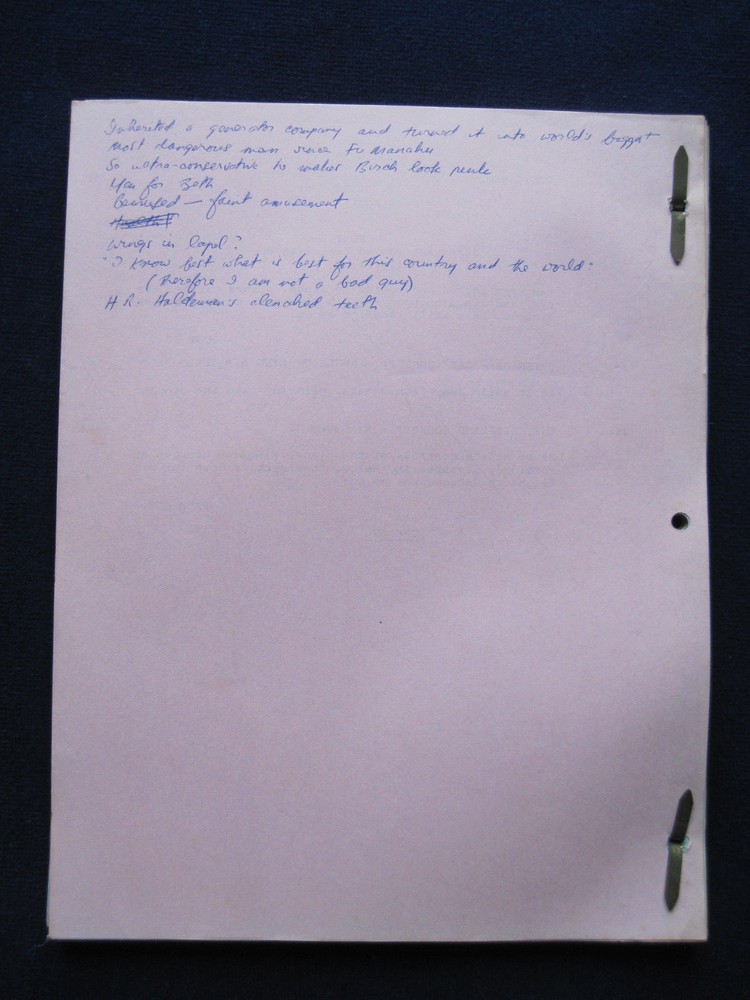 Inherited a generator company and turned it into world's biggest
most dangerous man since Fu Manchu
So ultra-conservative he makes Birch look pink
Yen for Beth
Bemused — faint amusement
wings in lapel?
"I know best what is best for this country and the world"
(Therefore I am not a bad guy)
H R. Haldeman's clenched teeth